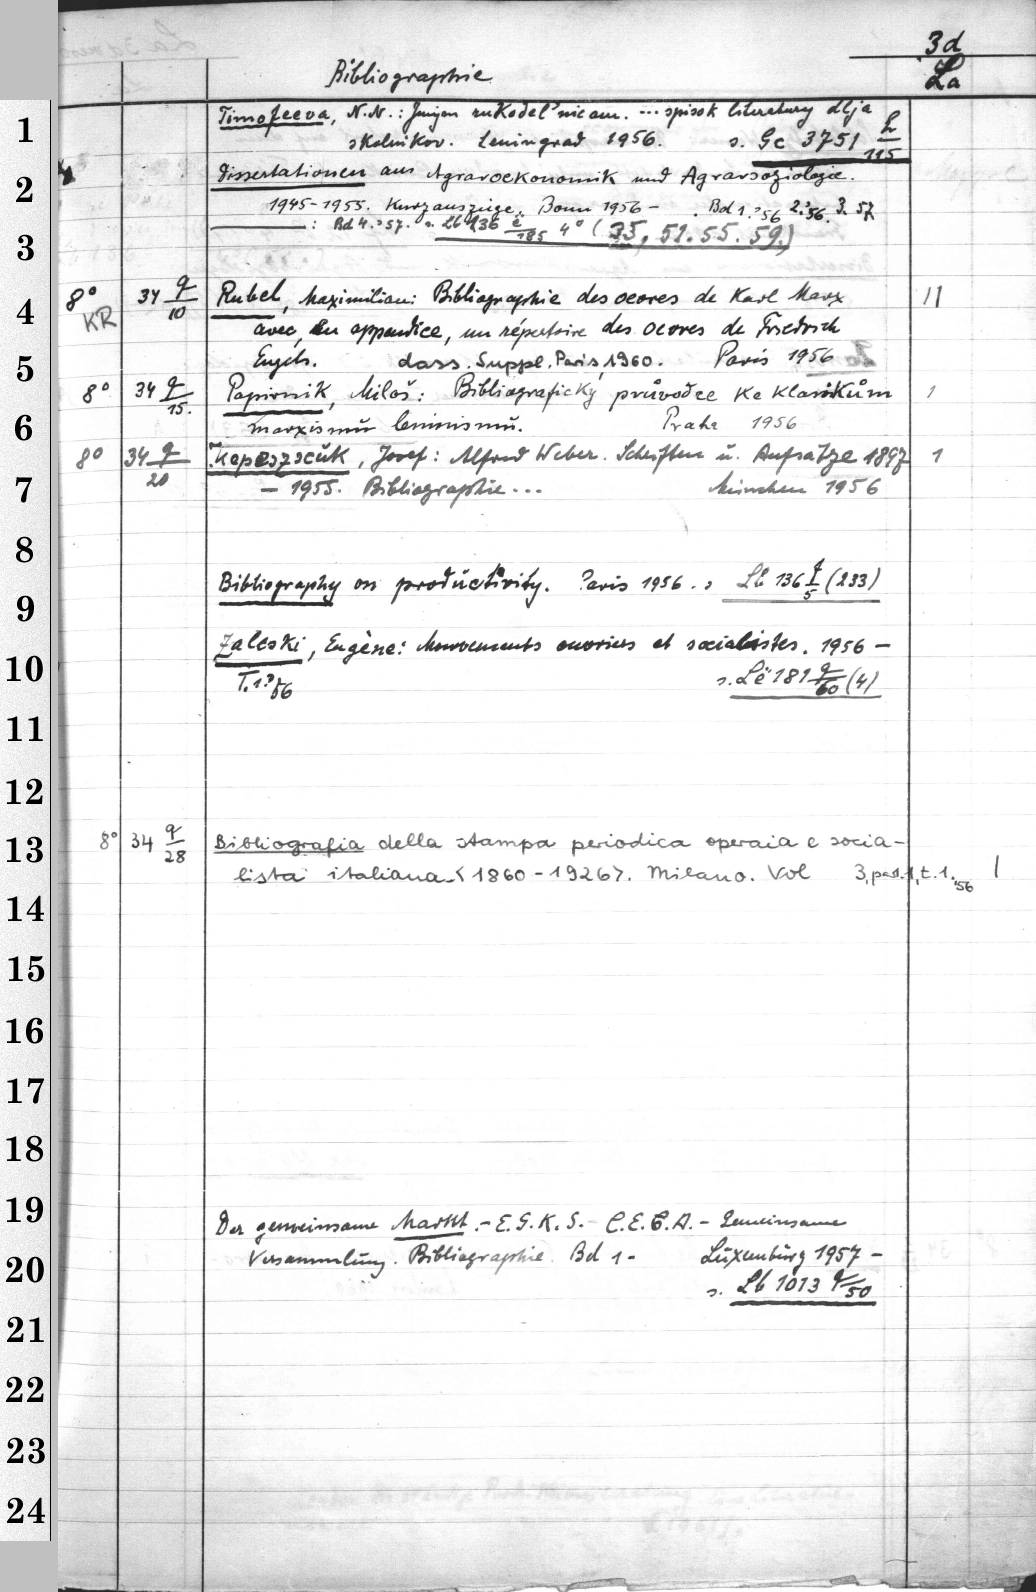 3d
Bibliographie La
1 Timofeeva, N.N.: Junym rukodel'nicam. ... spisok literatury dlja
skolnikov. Leningrad 1956. s. Gc 3751 h/115
2 Dissertationen aus Agraroekonomik und Agrarsoziologie.
1945-1955. Kurzauszüge. Bonn 1956 - . Bd 1.? 56 2.? 56. 3. 57.
3 : Bd 4.? 57. s. Lb 136 e/185 4° (35, 51. 55. 59.)
4 8° KR 34 q/10 Rubel, Maximilien: Bibliographie des oeuvres de Karl Marx 11
avec, en appendice, un répertoire des oeuvres de Friedrich
5 Engels. dass. Suppl. Paris 1960. Paris 1956
8° 34 q/15. Papirnik, Miloš: Bibliografický průvodce ke klasikům 1
6 marxismu leninismu. Praha 1956
8° 34 q/20 Kepeszczuk, Josef: Alfred Weber. Schriften u. Aufsätze 1897 1
7 - 1955. Bibliographie ... München 1956
8
9 Bibliography on productivity. Paris 1956. s Lb 136 f/5 (233)
10 Zaleski, Eugène: Mouvements ouvriers et socialistes. 1956 -
T. 1.? 56 s. Lë 181 q/60 (4)
11
12
13 8° 34 q/28 Bibliografia della stampa periodica operaia e socia-
lista italiana <1860-1926>. Milano. Vol 3, par. 1, t. 1. '56 1
14
15
16
17
18
19 Der gemeinsame Markt. - E.G.K.S. - C.E.C.A. - Gemeinsame
20 Versammlung. Bibliographie. Bd 1 - Luxemburg 1957 -
s. Lb 1013 q/50
21
22
23
24